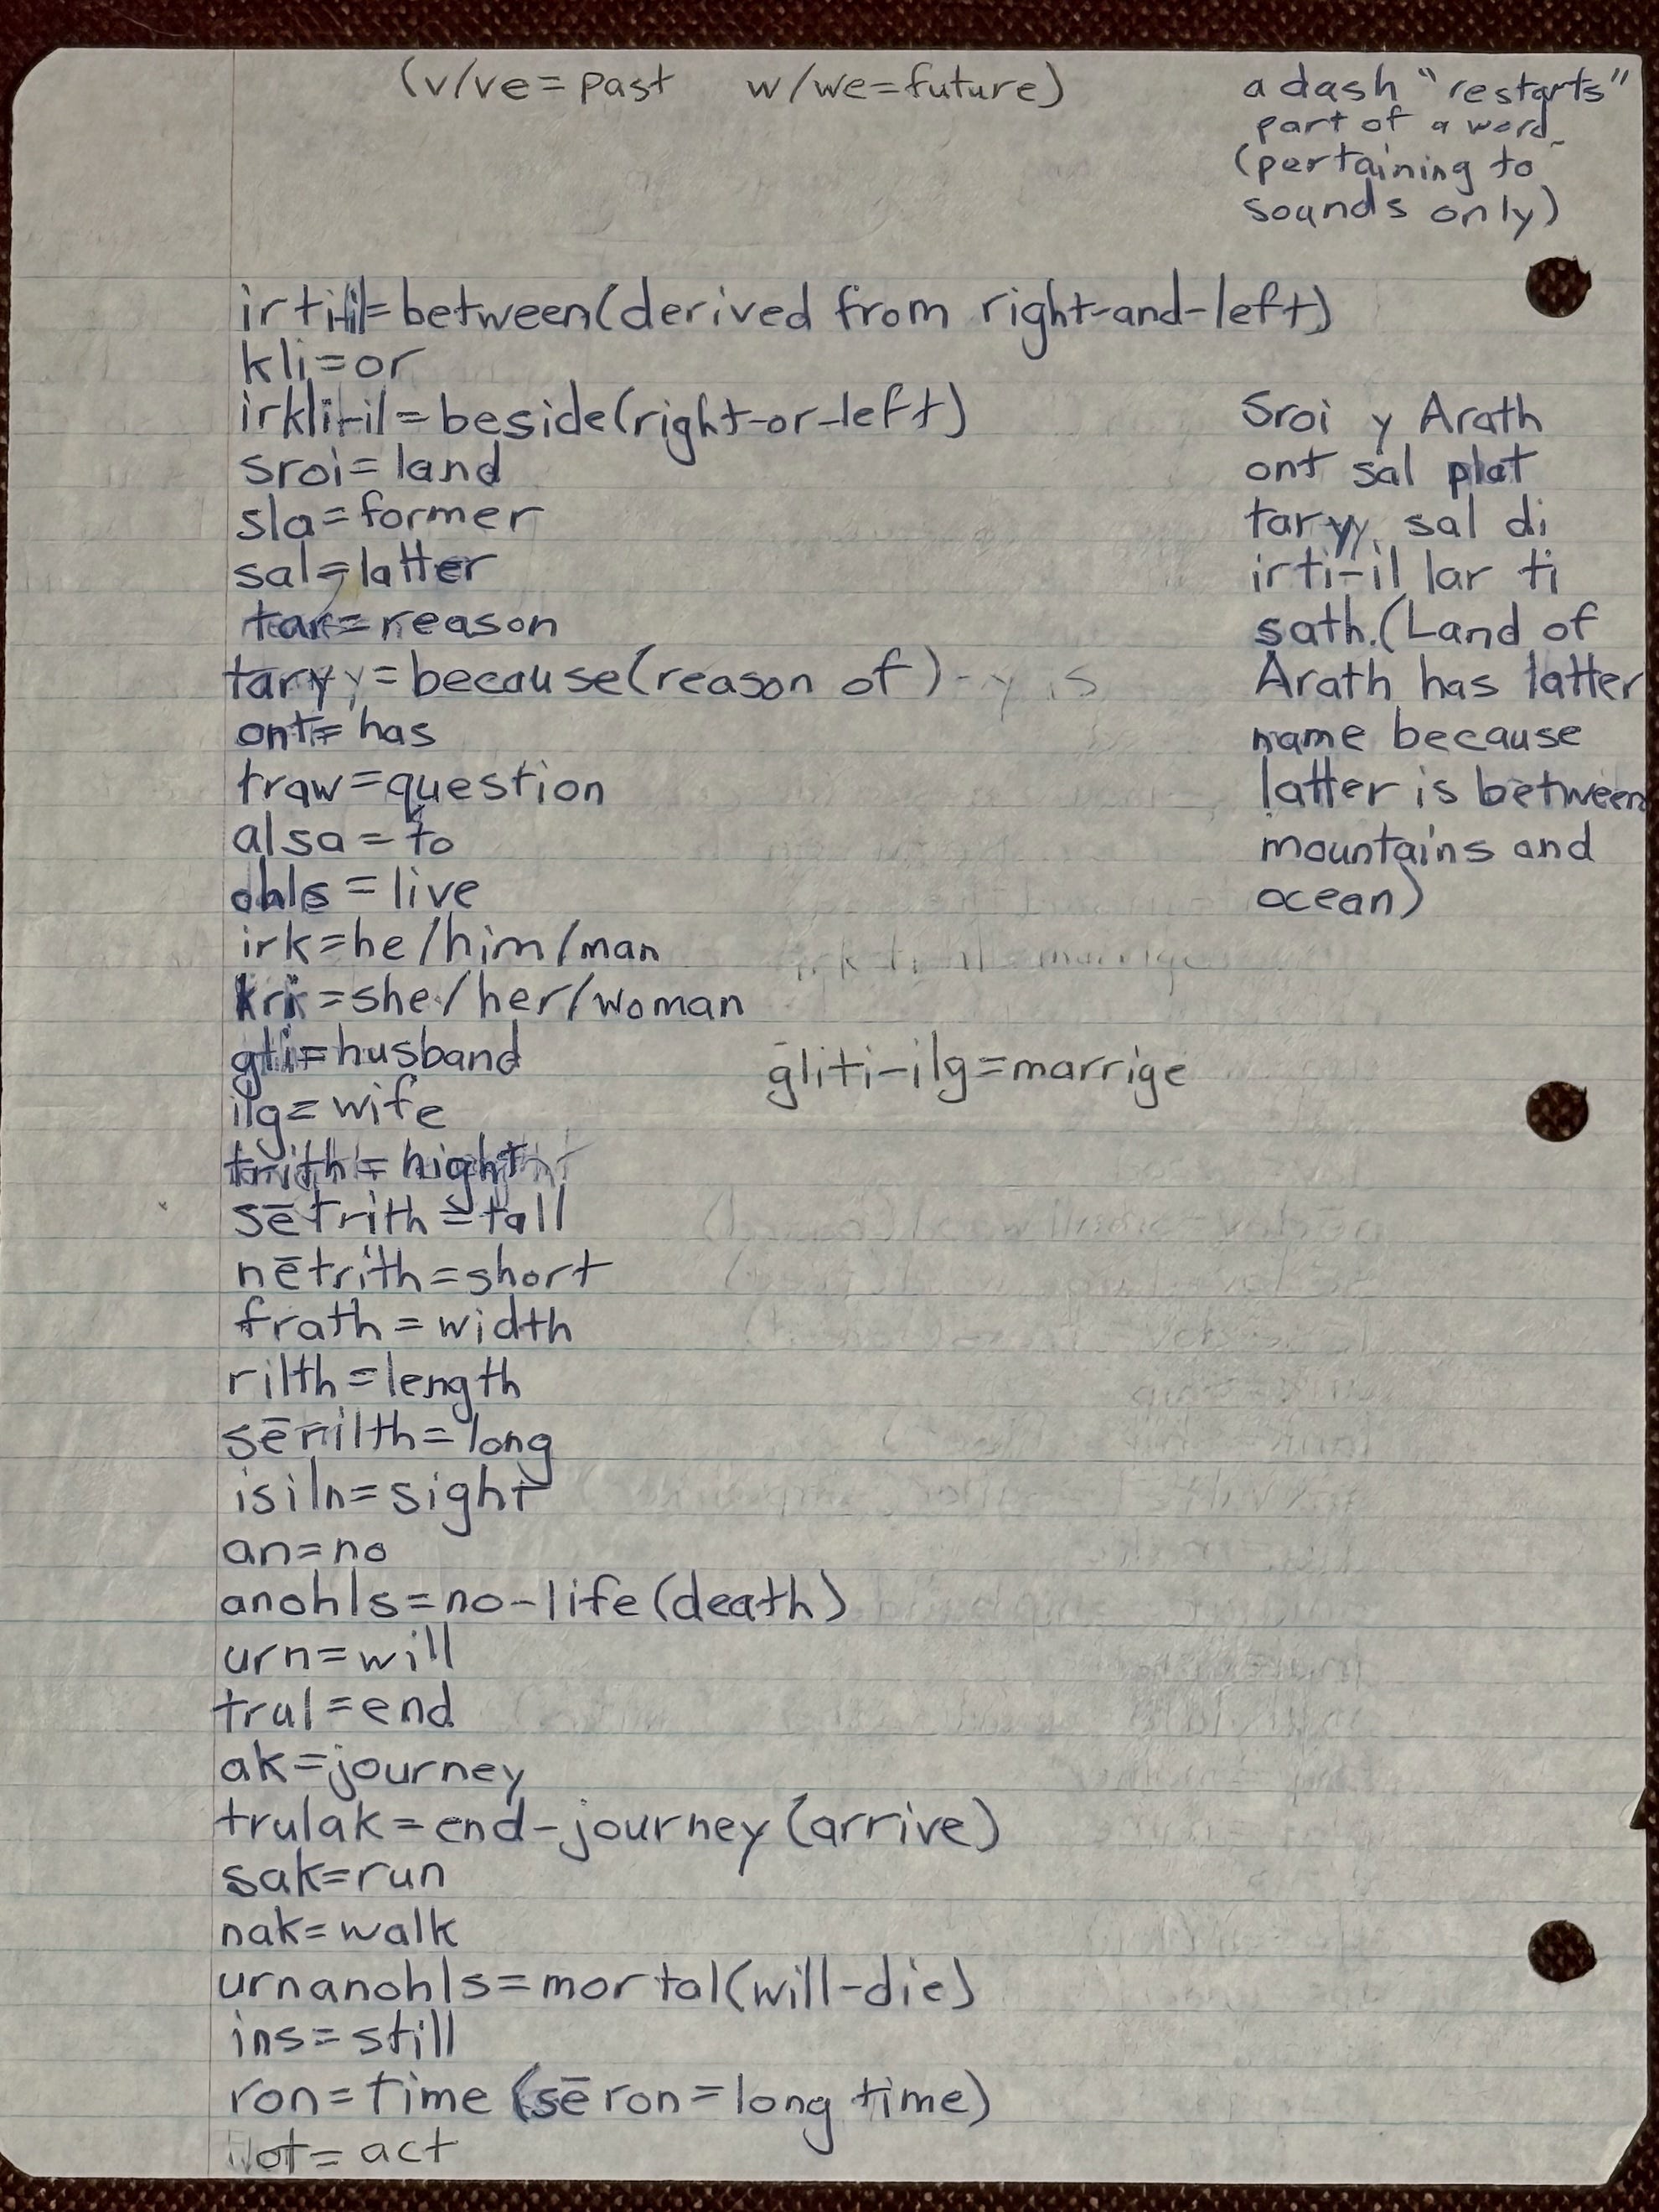 (v/ve=past w/we=future)
a dash "restarts"
part of a word
(pertaining to
sounds only)
irti-il=between(derived from right-and-left)
kli=or
irkli-il=beside(right-or-left)
sroi=land
sla=former
sal=latter
tar=reason
taryy=because(reason of)-y is
ont=has
traw=question
alsa=to
ohls=live
irk=he/him/man
kri=she/her/woman
gli=husband
gliti-ilg=marrige
ilg=wife
trith=hight
sētrith=tall
nētrith=short
frath=width
rilth=length
sērilth=long
isiln=sight
an=no
anohls=no-life(death)
urn=will
trul=end
ak=journey
trulak=end-journey(arrive)
sak=run
nak=walk
urnanohls=mortal(will-die)
ins=still
ron=time (sēron=long time)
=act
Sroi y Arath
ont sal plat
taryy, sal di
irti-il lar ti
sath.(Land of
Arath has latter
name because
latter is between
mountains and
ocean)